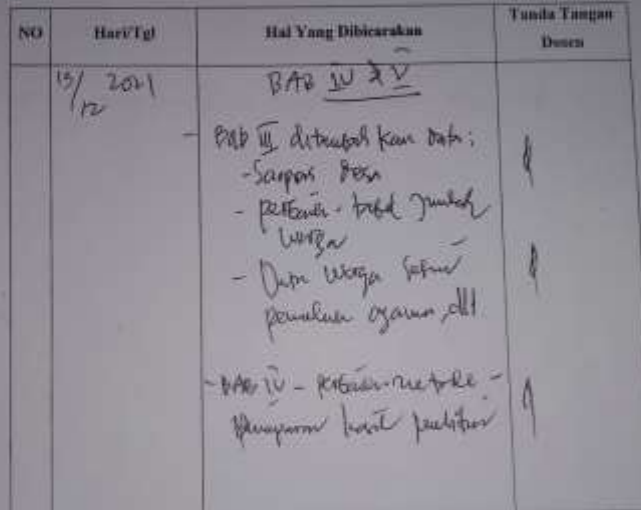 NO Hari/Tgl Hal Yang Dibicarakan Tanda Tangan Dosen
15/12 2021 BAB IV & V
- BAB III ditambahkan data:
- Sarpras Desa
- perbaiki - tabel jumlah
warga
- Data warga
pemeluk agama, dll
- BAB IV - perbaiki - metode -
hasil penelitian